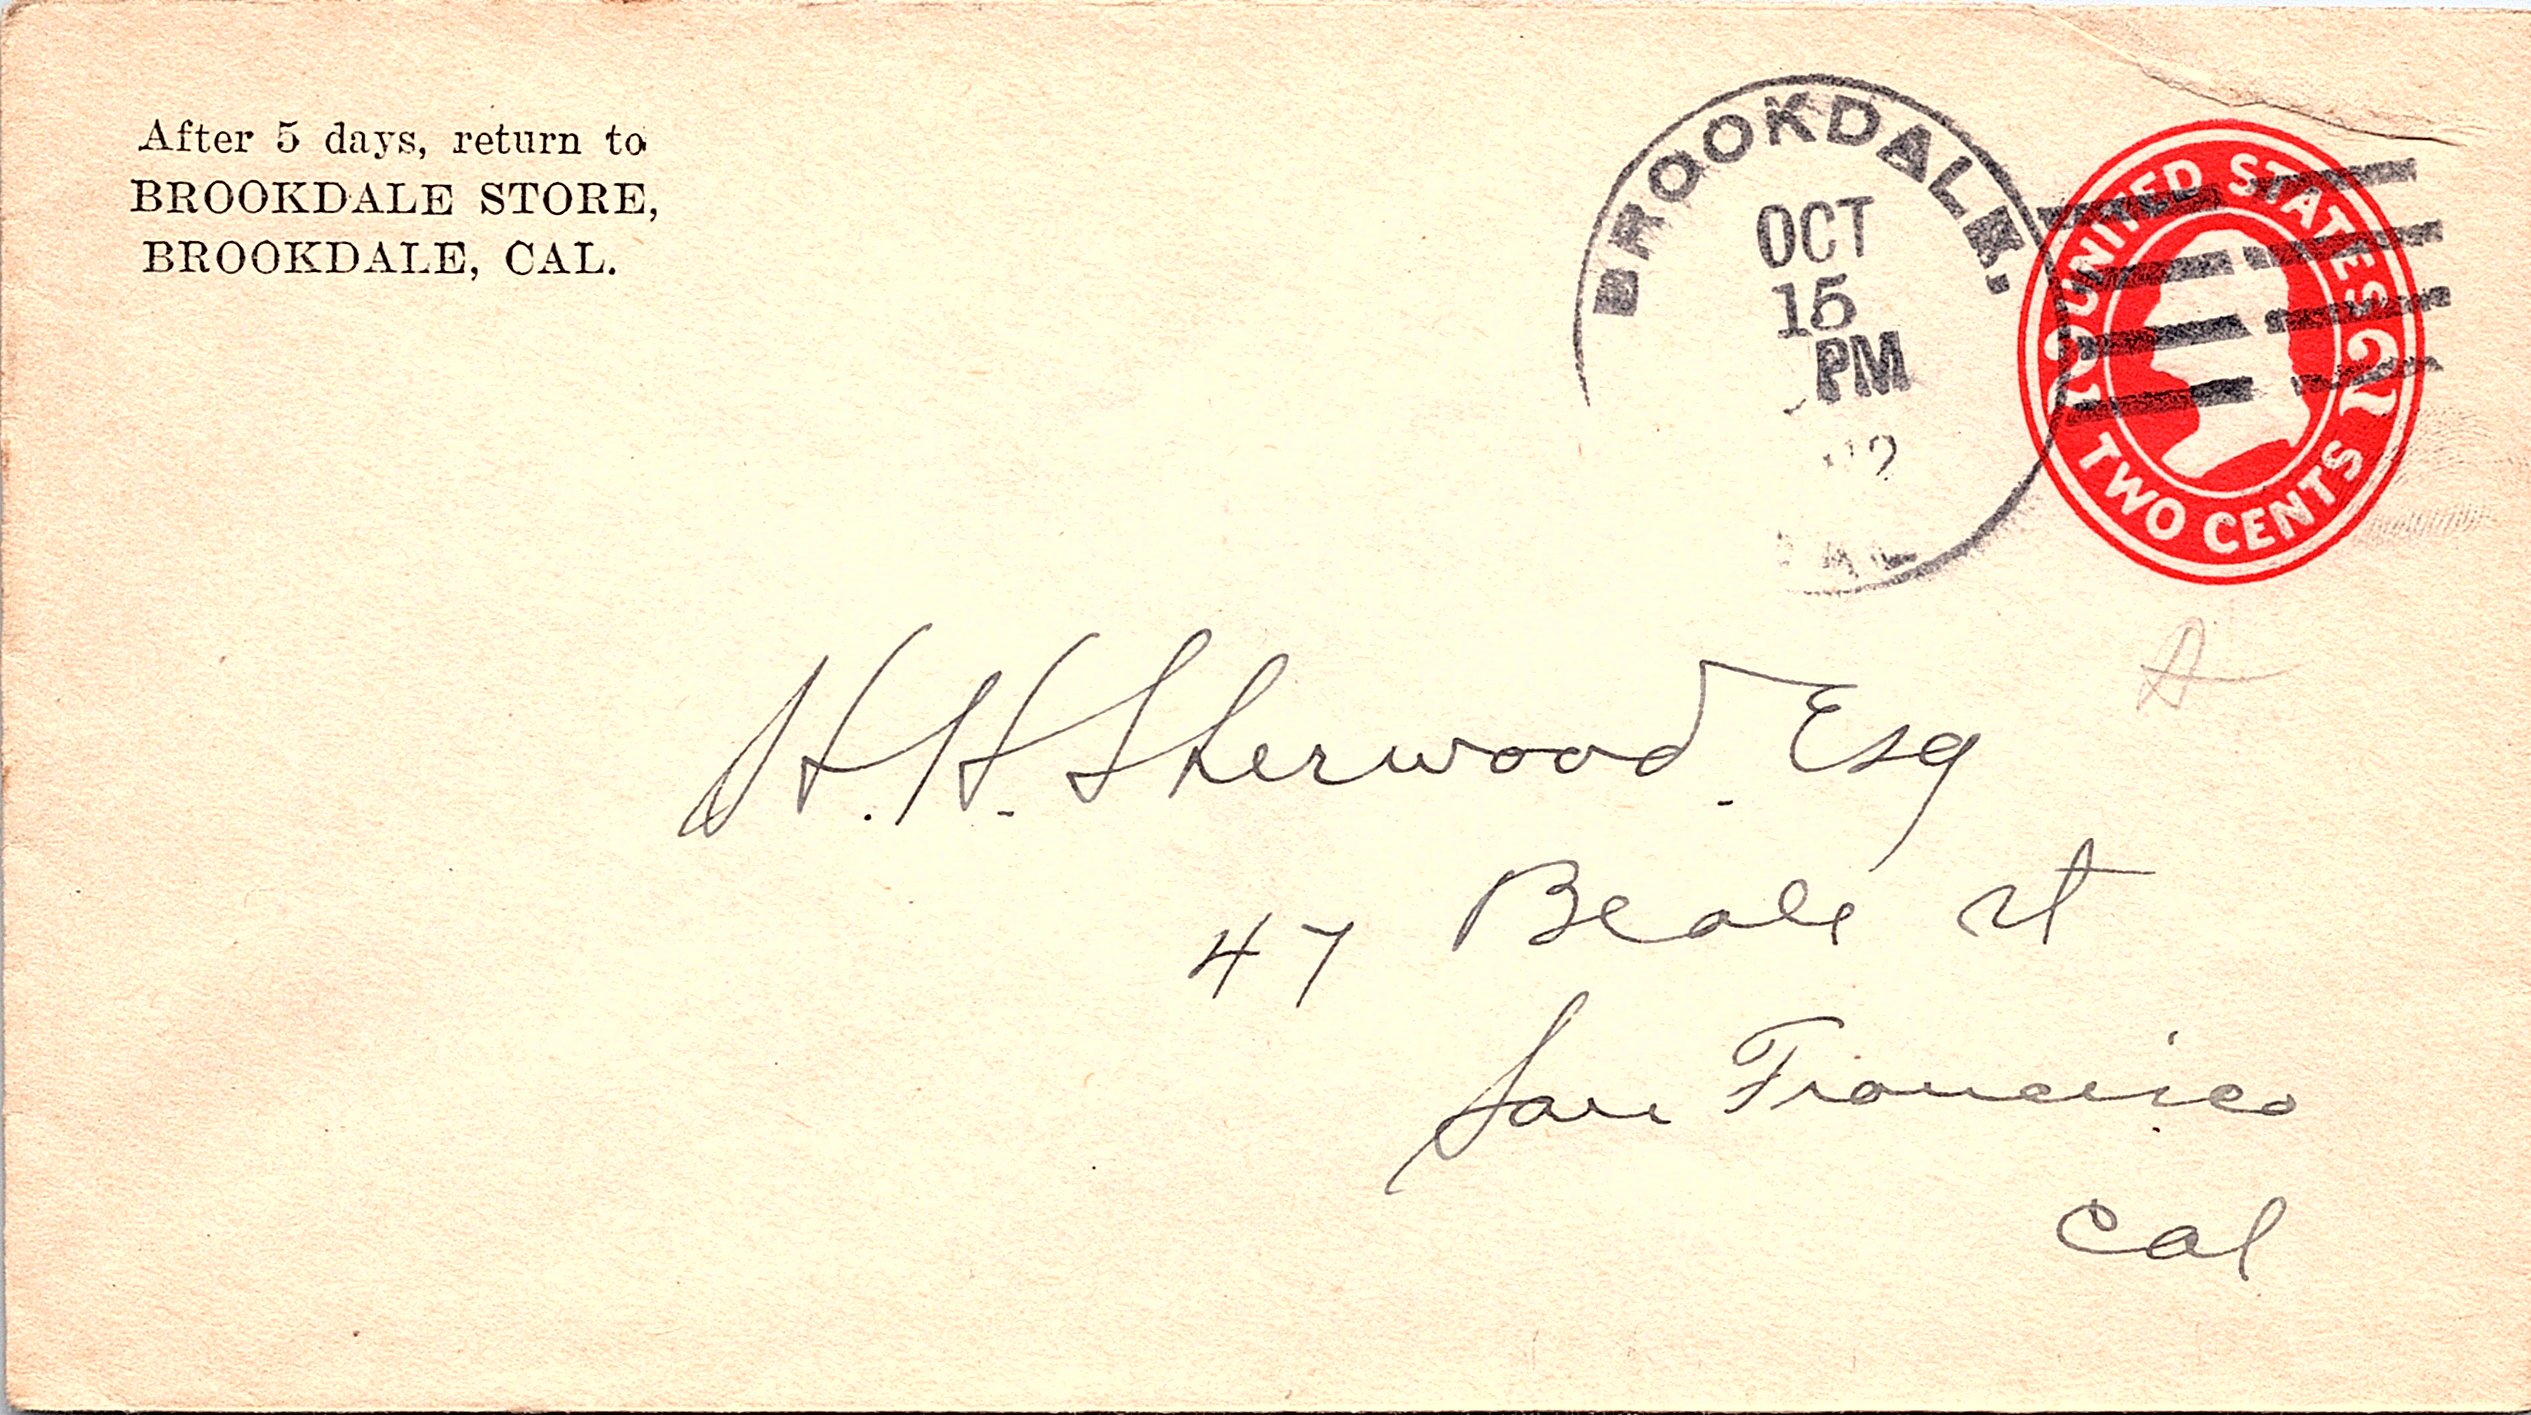 After 5 days, return to
BROOKDALE STORE,
BROOKDALE, CAL.
BROOKDALE.
OCT
15
PM
UNITED STATES
2 2
TWO CENTS
H. H. Sherwood. Esq
47 Beale st
San Francisco
Cal